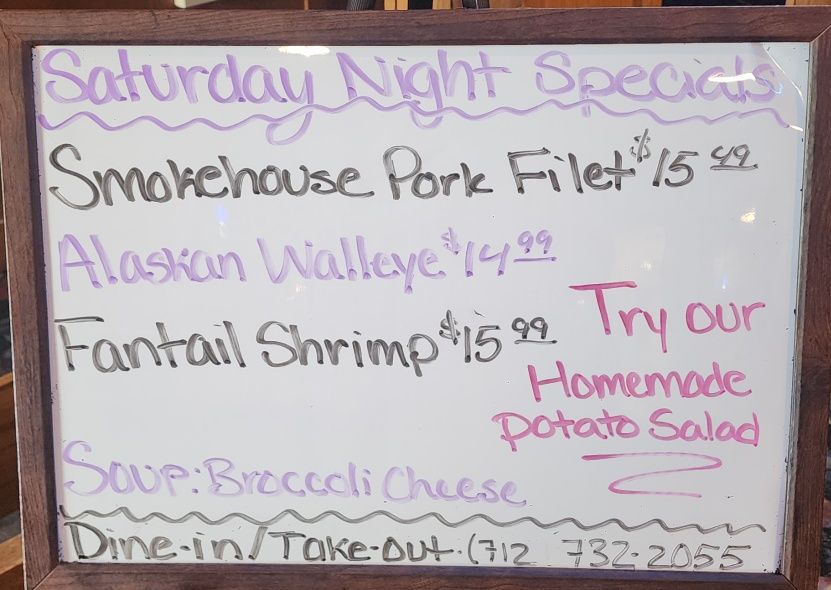 Saturday Night Specials
Smokehouse Pork Filet $15 49
Alaskan Walleye $14 99
Fantail Shrimp $15 99
Try our
Homemade
potato Salad
Soup: Broccoli Cheese
Dine-in/Take-out (712 732-2055